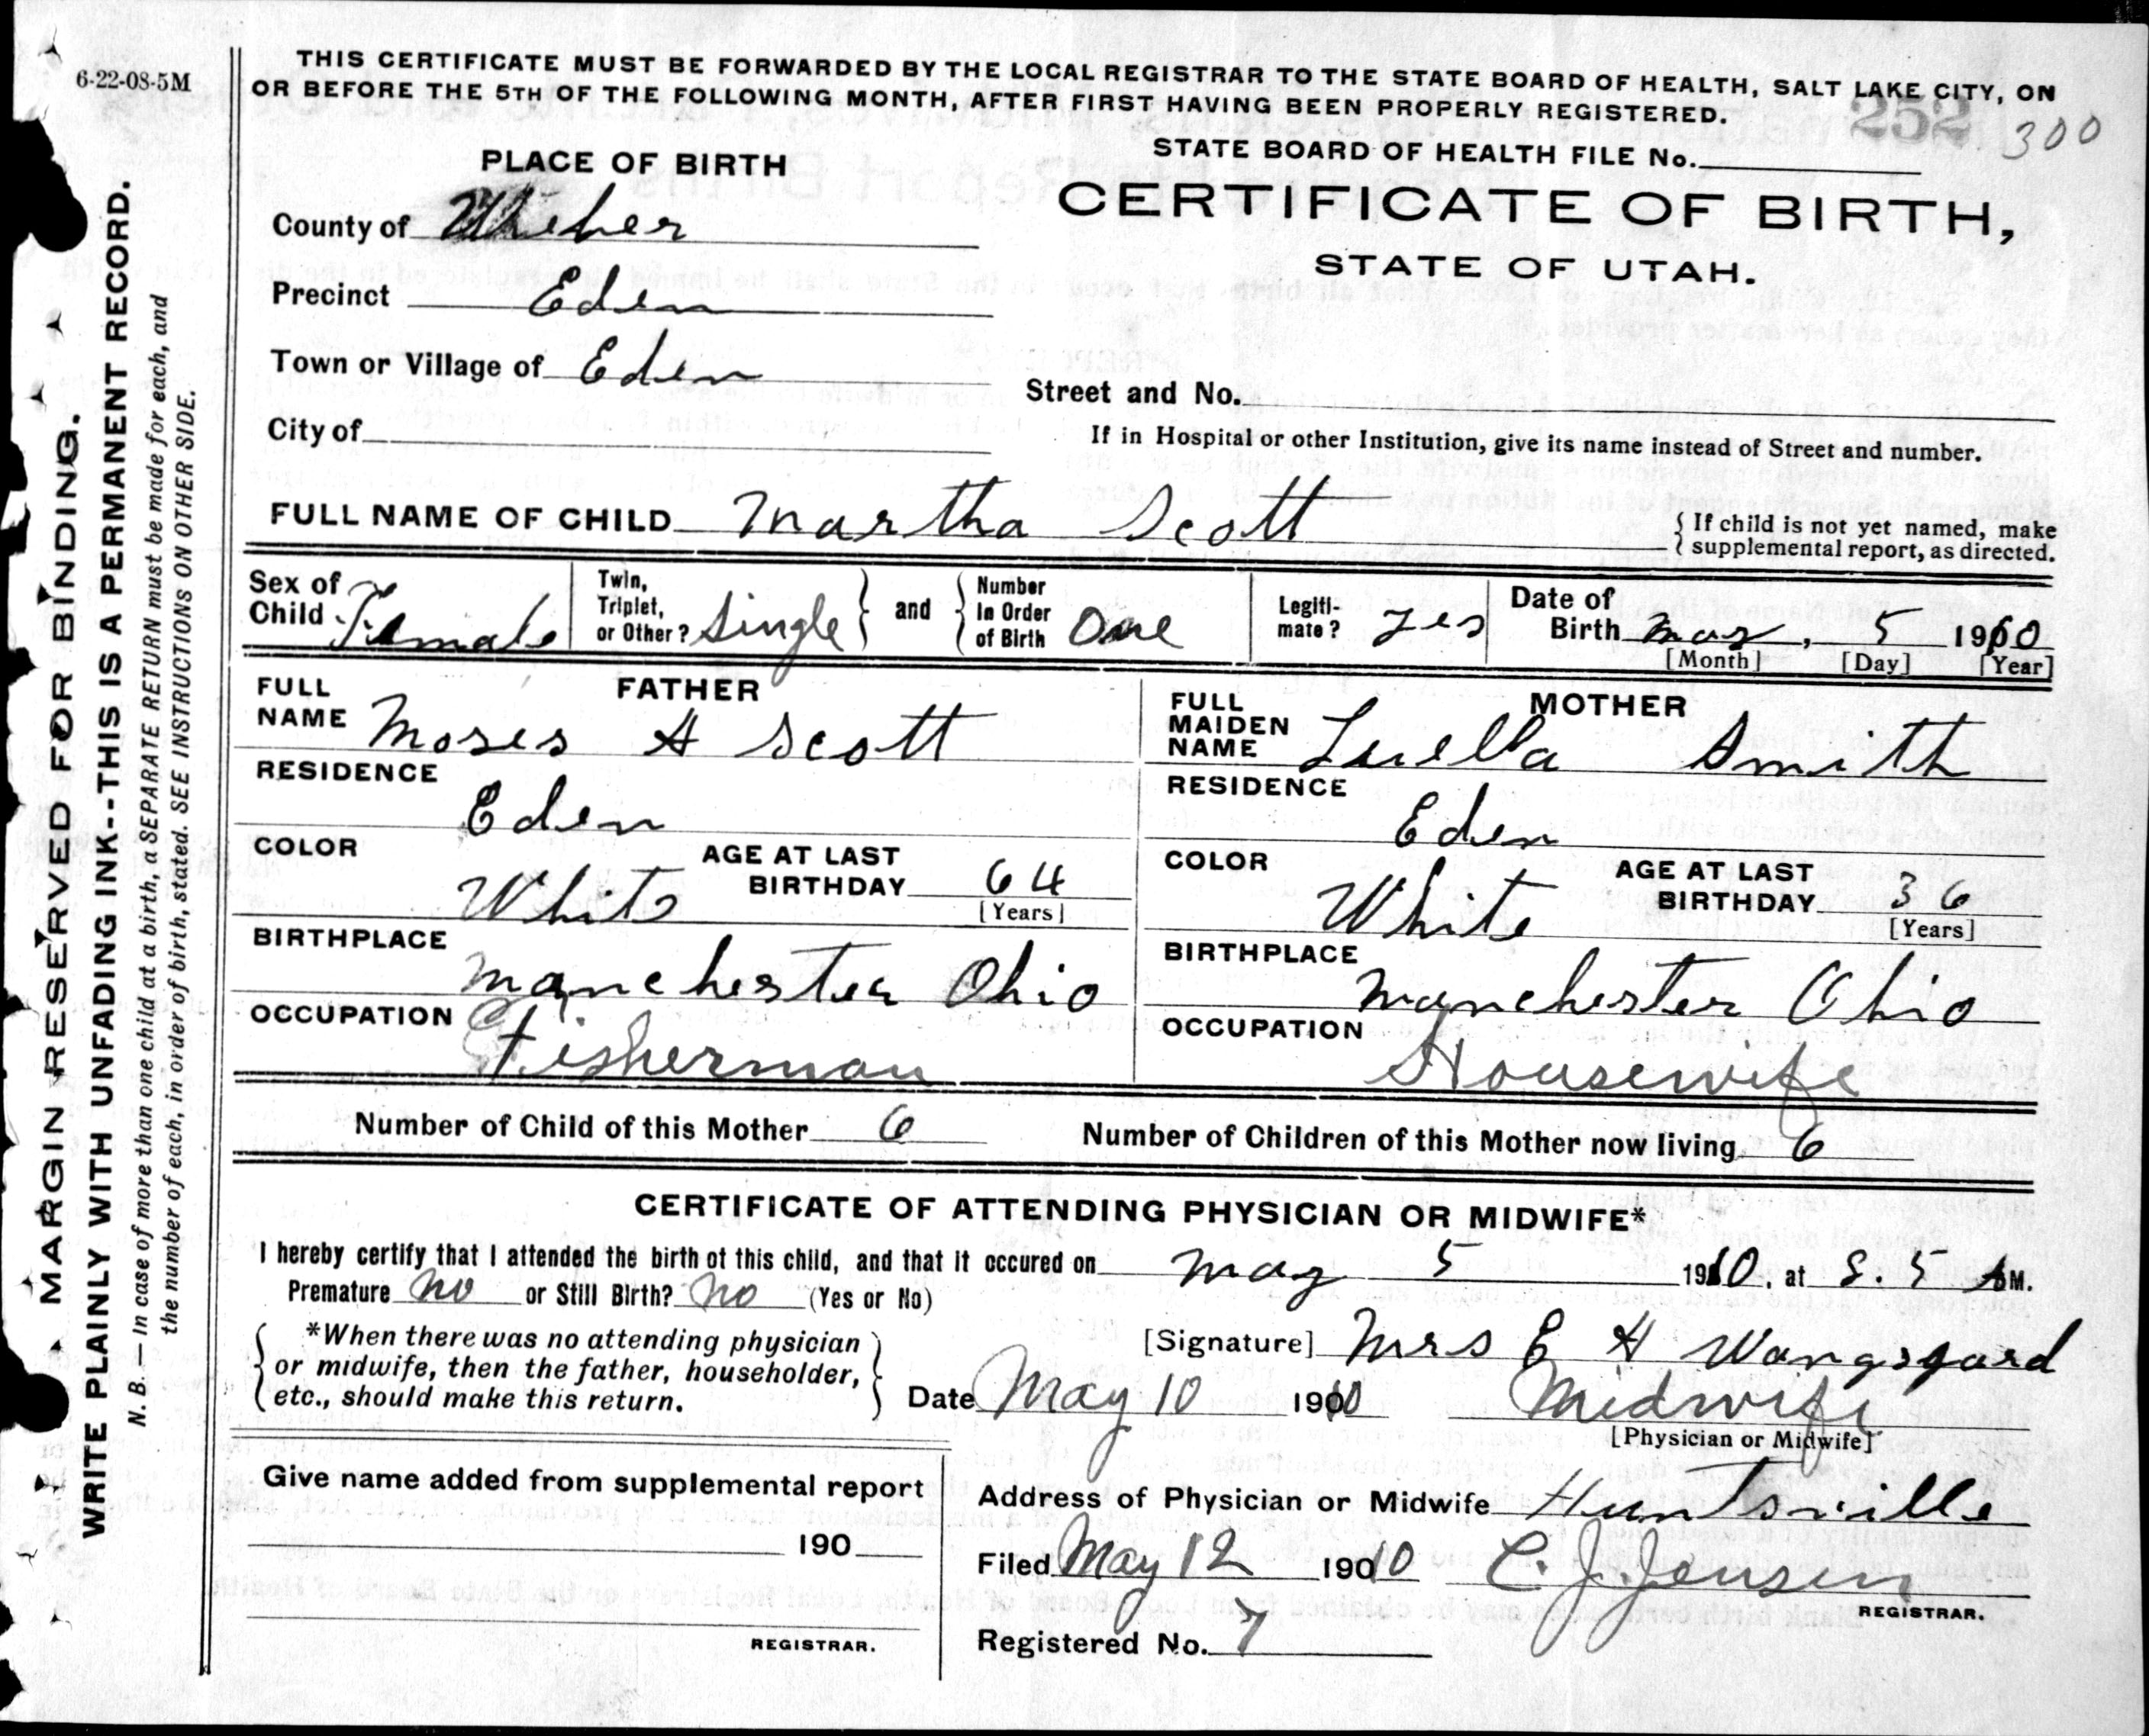 6-22-08-5M
THIS CERTIFICATE MUST BE FORWARDED BY THE LOCAL REGISTRAR TO THE STATE BOARD OF HEALTH, SALT LAKE CITY, ON
OR BEFORE THE 5TH OF THE FOLLOWING MONTH, AFTER FIRST HAVING BEEN PROPERLY REGISTERED.
252
300
STATE BOARD OF HEALTH FILE No.
PLACE OF BIRTH
CERTIFICATE OF BIRTH,
STATE OF UTAH.
County of Weber
Precinct Eden
Town or Village of Eden
Street and No.
City of
If in Hospital or other Institution, give its name instead of Street and number.
FULL NAME OF CHILD Martha Scott
If child is not yet named, make
supplemental report, as directed.
Sex of
Child Female
Twin,
Triplet,
or Other? Single
and
Number
In Order
of Birth One
Legiti-
mate? Yes
Date of
Birth May, 5 1910
[Month] [Day] [Year]
FATHER
FULL
NAME Moses A Scott
RESIDENCE
Eden
COLOR
White
AGE AT LAST
BIRTHDAY 64
[Years]
BIRTHPLACE
Manchester Ohio
OCCUPATION
Fisherman
MOTHER
FULL
MAIDEN
NAME Luella Smith
RESIDENCE
Eden
COLOR
White
AGE AT LAST
BIRTHDAY 36
[Years]
BIRTHPLACE
Manchester Ohio
OCCUPATION
Housewife
Number of Child of this Mother 6
Number of Children of this Mother now living 6
CERTIFICATE OF ATTENDING PHYSICIAN OR MIDWIFE*
I hereby certify that I attended the birth of this child, and that it occured on May 5 1910, at 8.5 AM.
Premature no or Still Birth? no (Yes or No)
*When there was no attending physician
or midwife, then the father, householder,
etc., should make this return.
[Signature] Mrs E H Wangsgard
Date May 10 1910 Midwife
[Physician or Midwife]
Give name added from supplemental report
190
REGISTRAR.
Address of Physician or Midwife Huntsville
Filed May 12 1910 C. J. Jensen
REGISTRAR.
Registered No. 7
MARGIN RESERVED FOR BINDING.
WRITE PLAINLY WITH UNFADING INK--THIS IS A PERMANENT RECORD.
N. B.— In case of more than one child at a birth, a SEPARATE RETURN must be made for each, and
the number of each, in order of birth, stated. SEE INSTRUCTIONS ON OTHER SIDE.